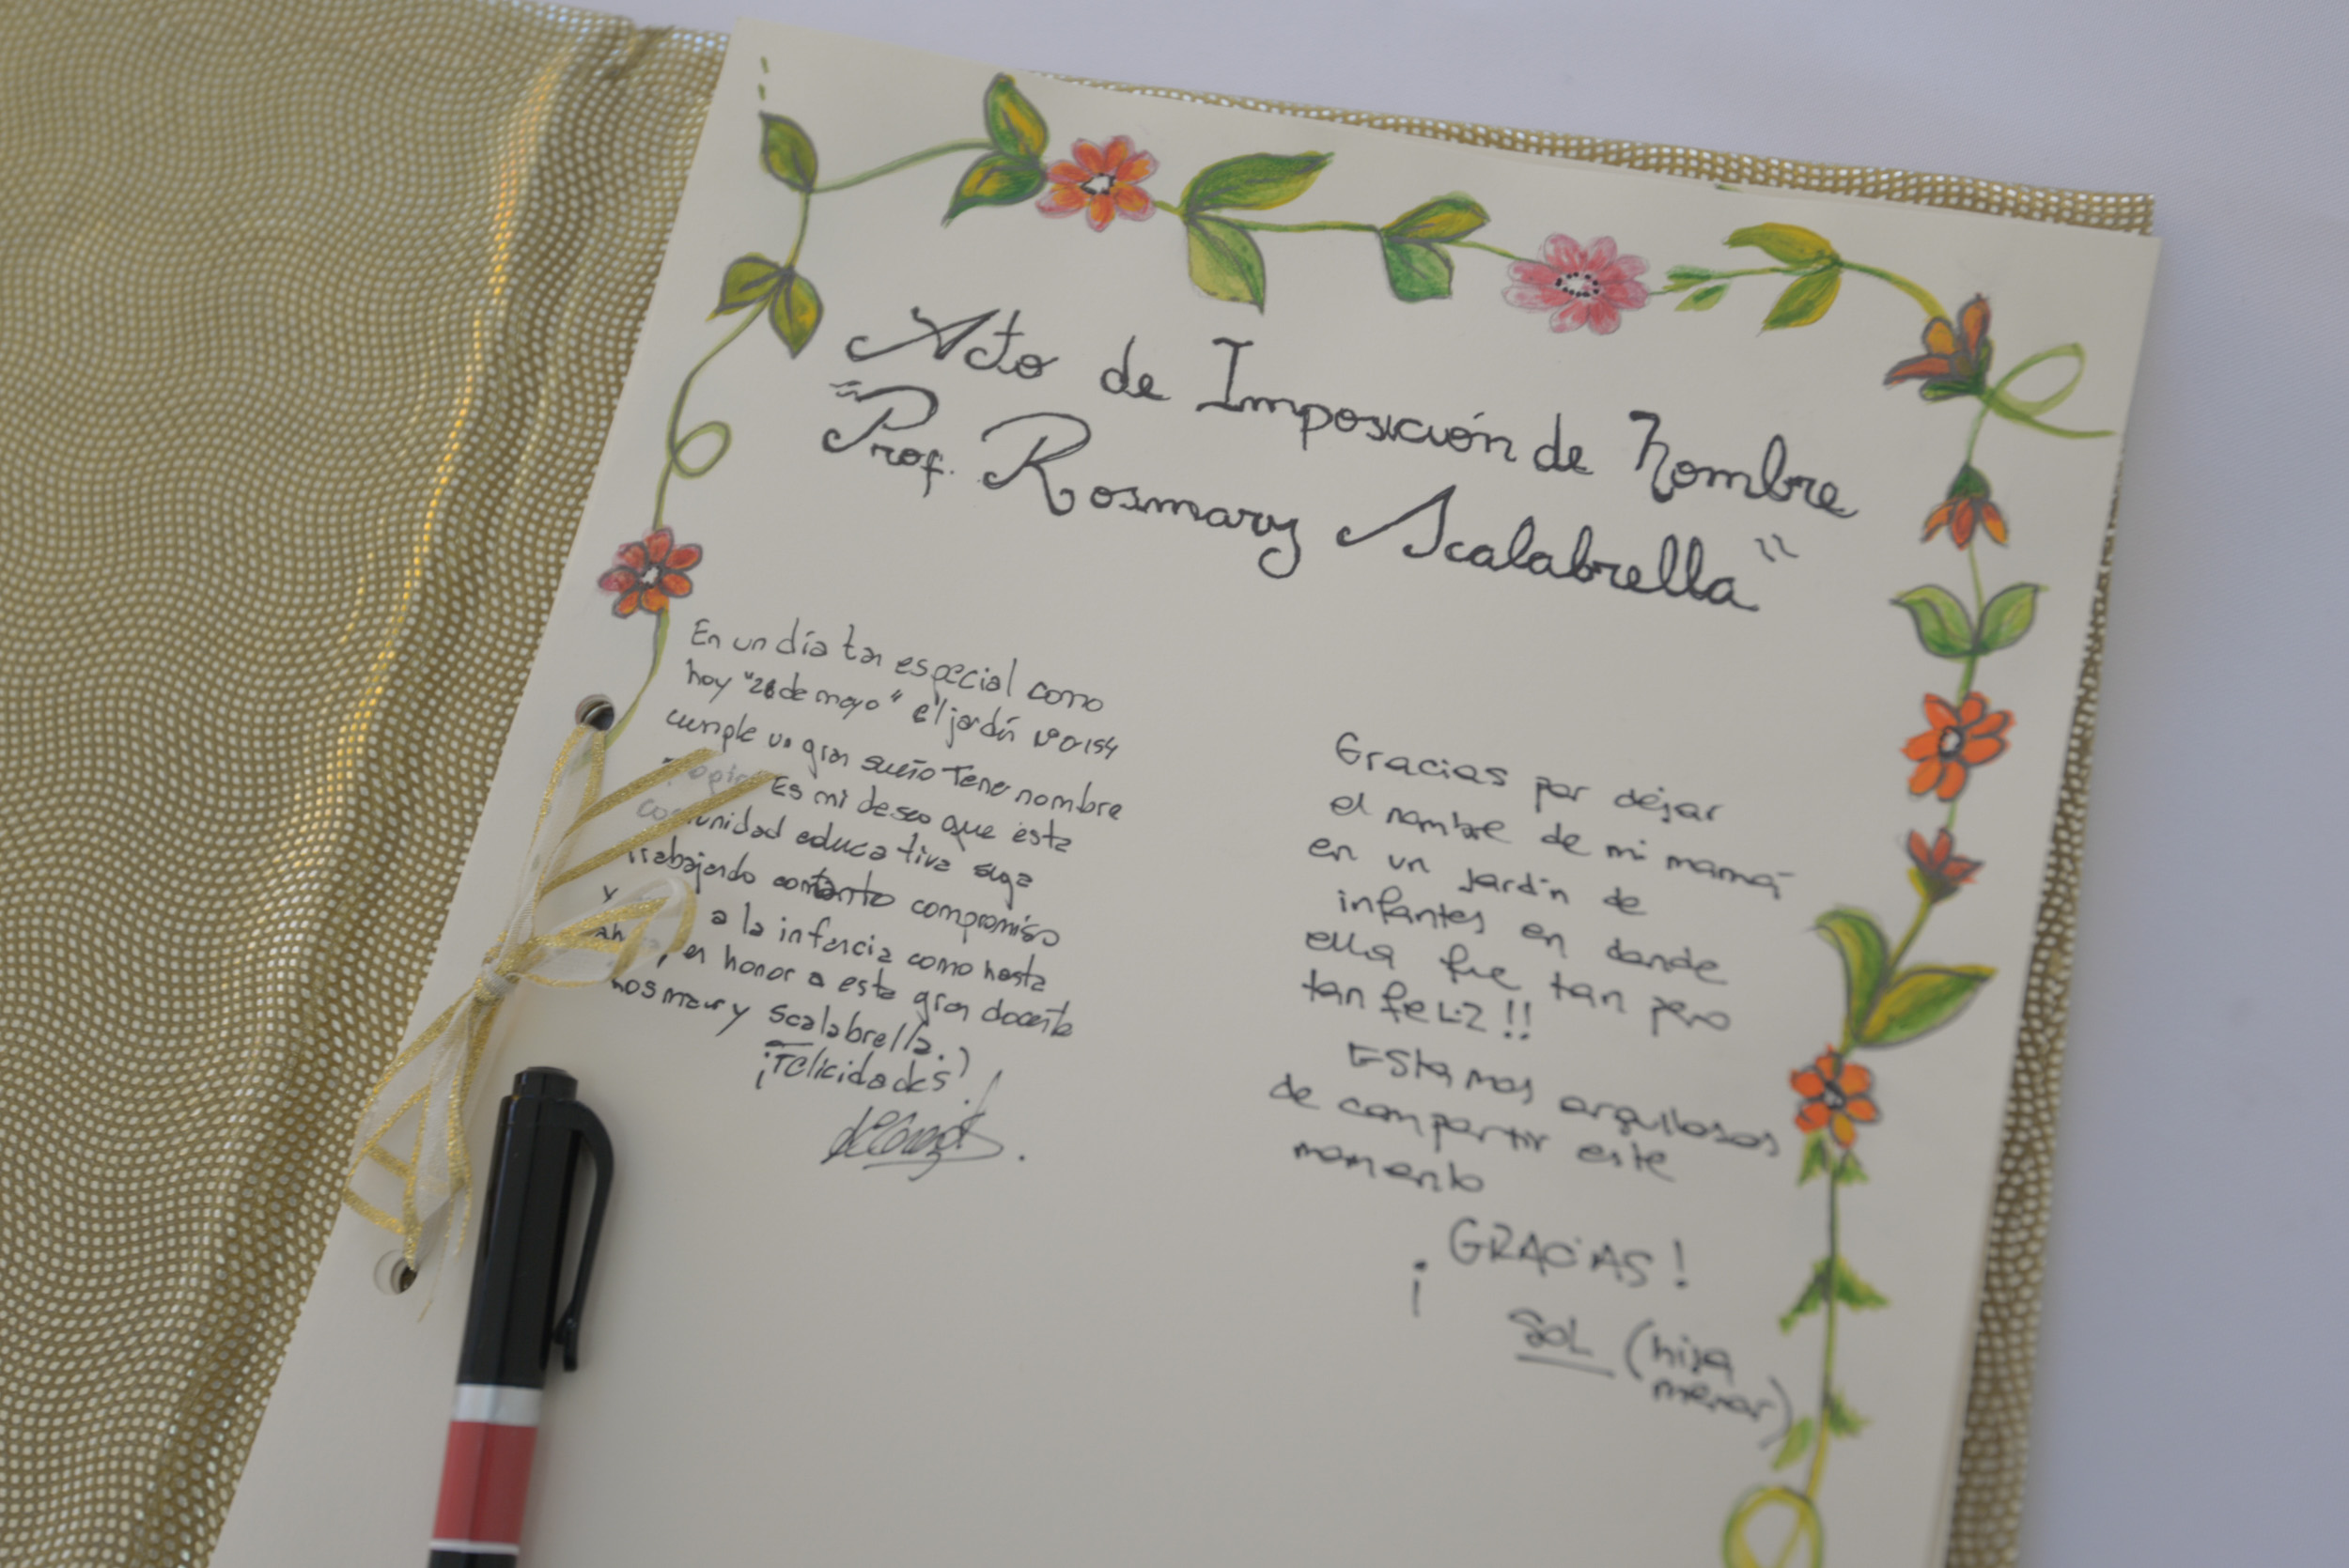 Acto de Imposición de Nombre
"Prof. Rosmary Scalabrella"
En un día tan especial como
hoy "28 de mayo" el jardín Nº 0-154
cumple un gran sueño Tener nombre
propio. Es mi deseo que esta
comunidad educativa siga
trabajando con tanto compromiso
y a la infancia como hasta
ahora, en honor a esta gran docente
Rosmary Scalabrella.
¡Felicidades!
Gracias por dejar
el nombre de mi mamá
en un jardín de
infantes en donde
ella fue tan pero
tan feliz!!
Estamos orgullosos
de compartir este
momento
¡GRACIAS!
SOL (hija
menor)